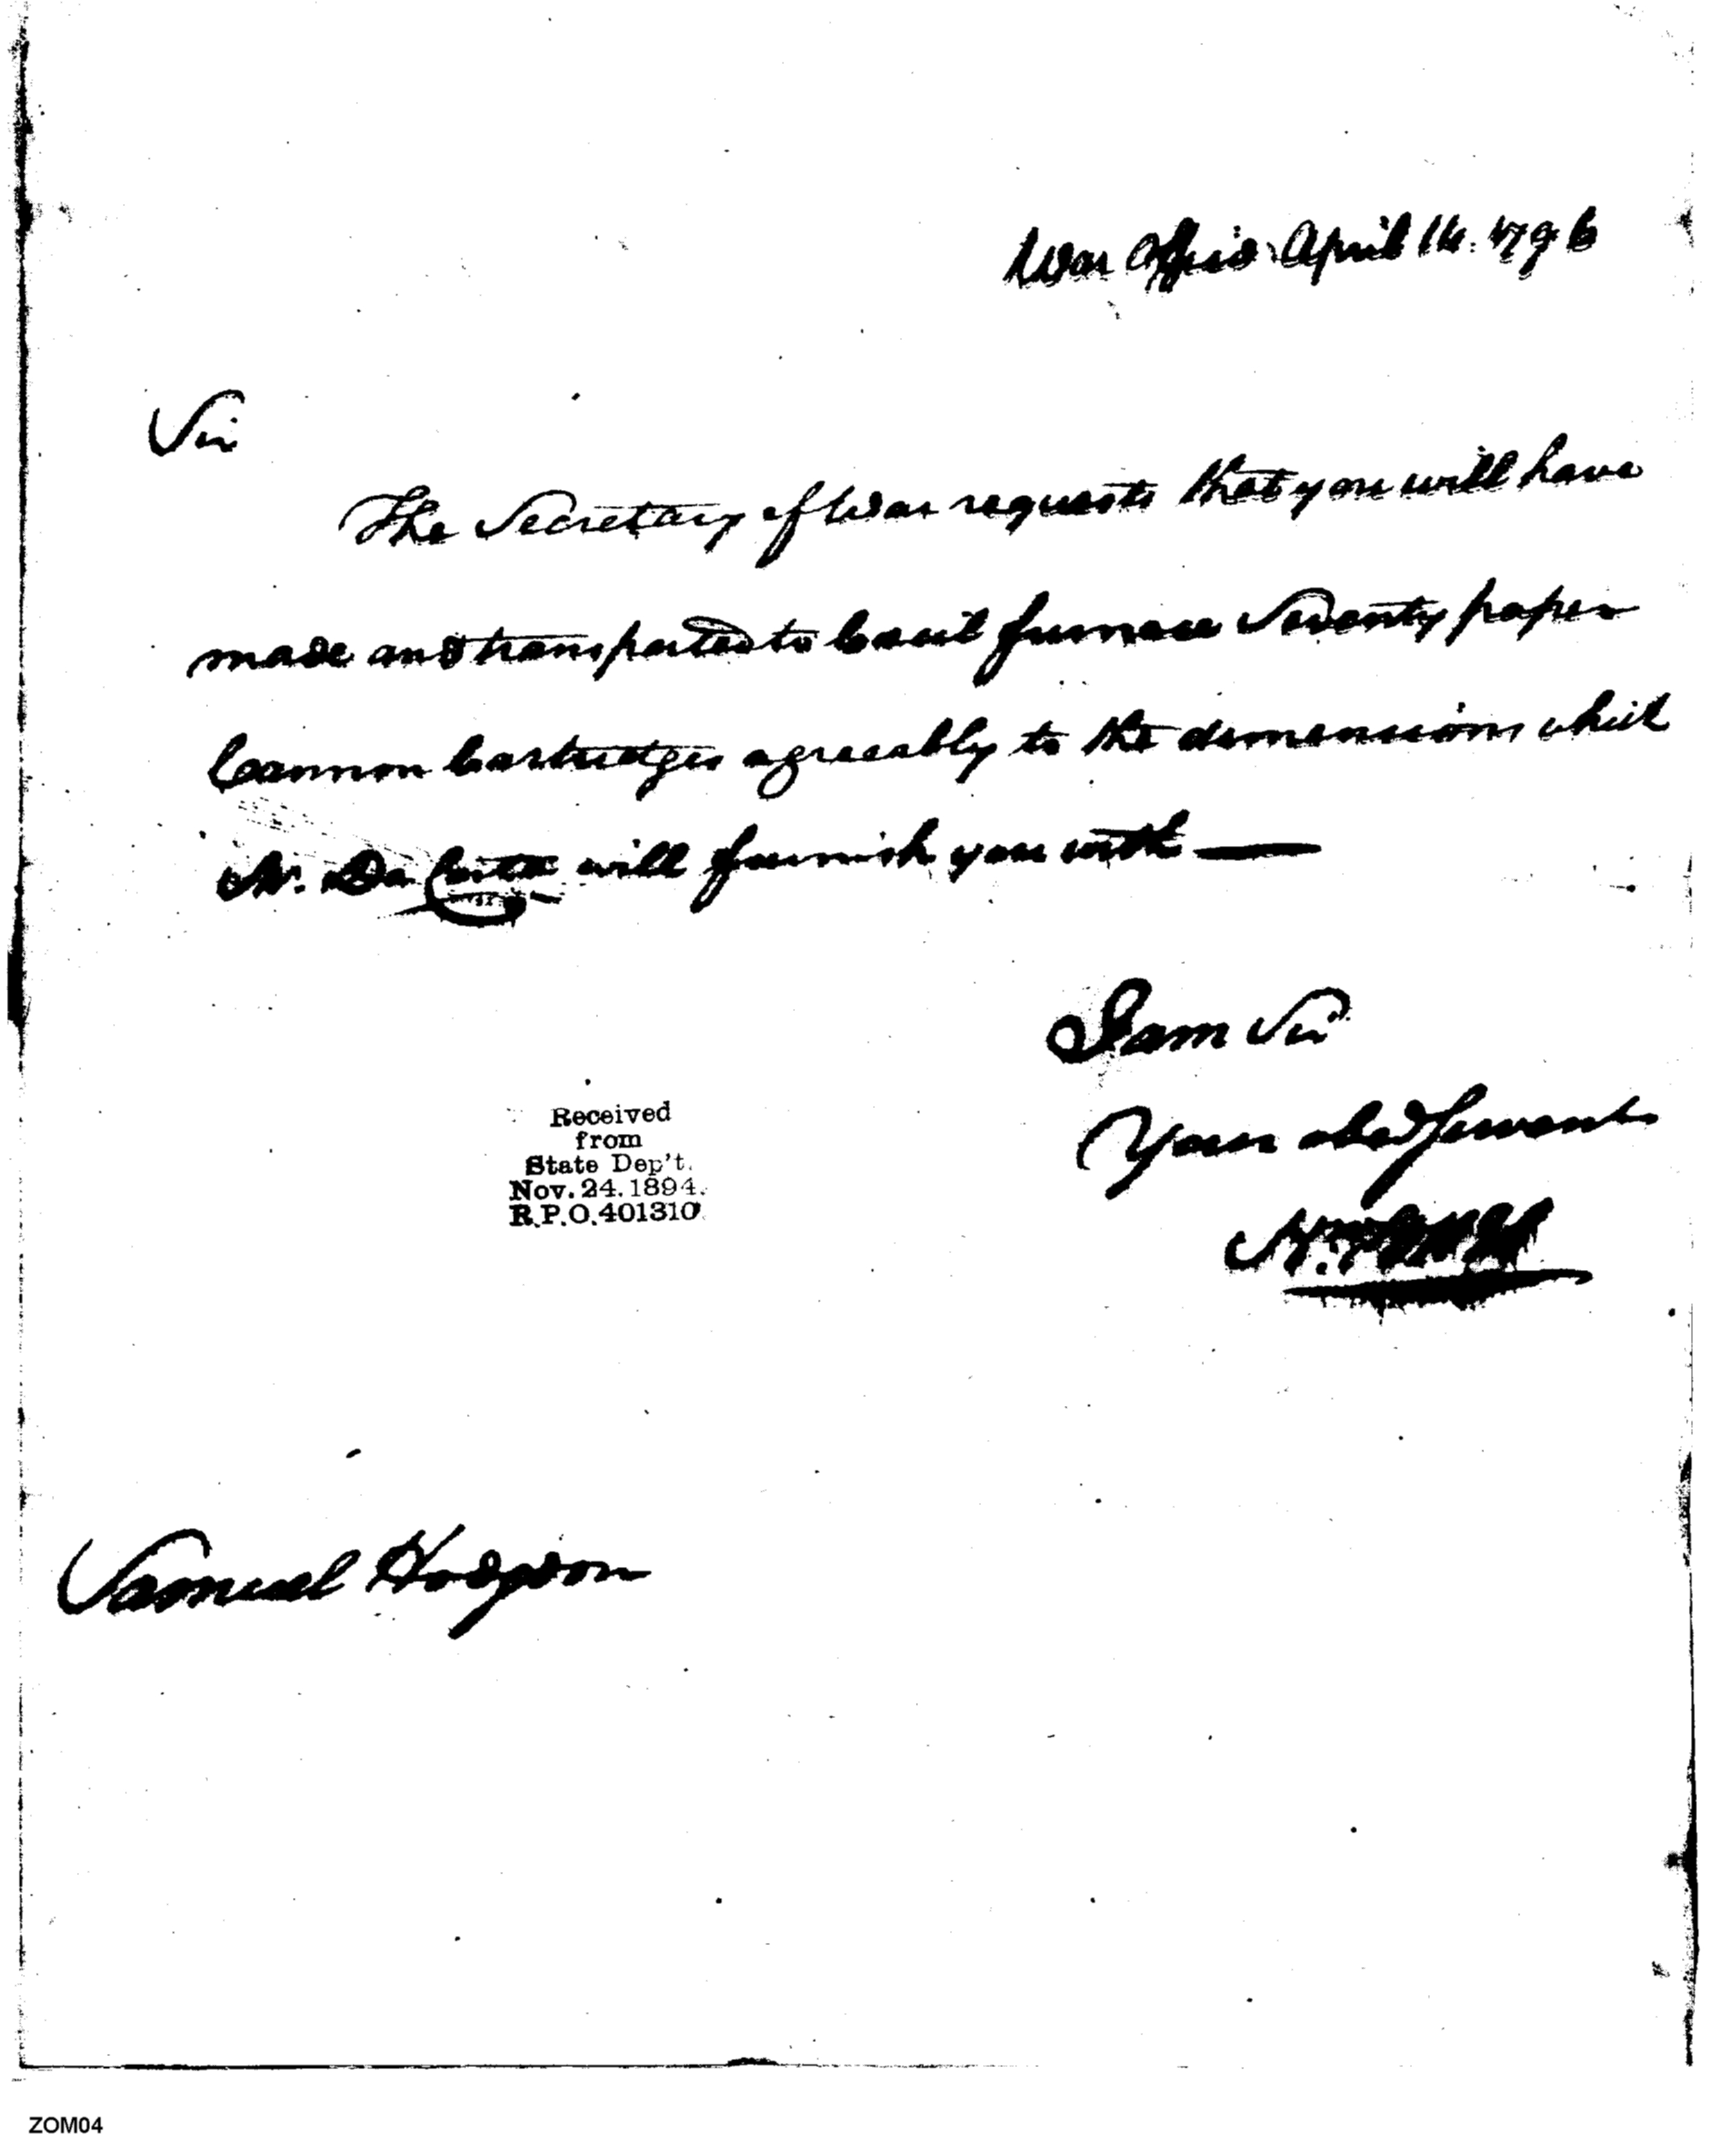 War Office April 16. 1796
Sir
The Secretary of War requests that you will have
made and transported to Cecil furnace Seventy paper
Cannon Cartridges agreeably to the dimensions which
Mr. De will furnish you with —
I am Sir
Your obed Servant
Received
from
State Dep't.
Nov. 24. 1894.
R.P.O. 401310.
Samuel Hodgdon
ZOM04